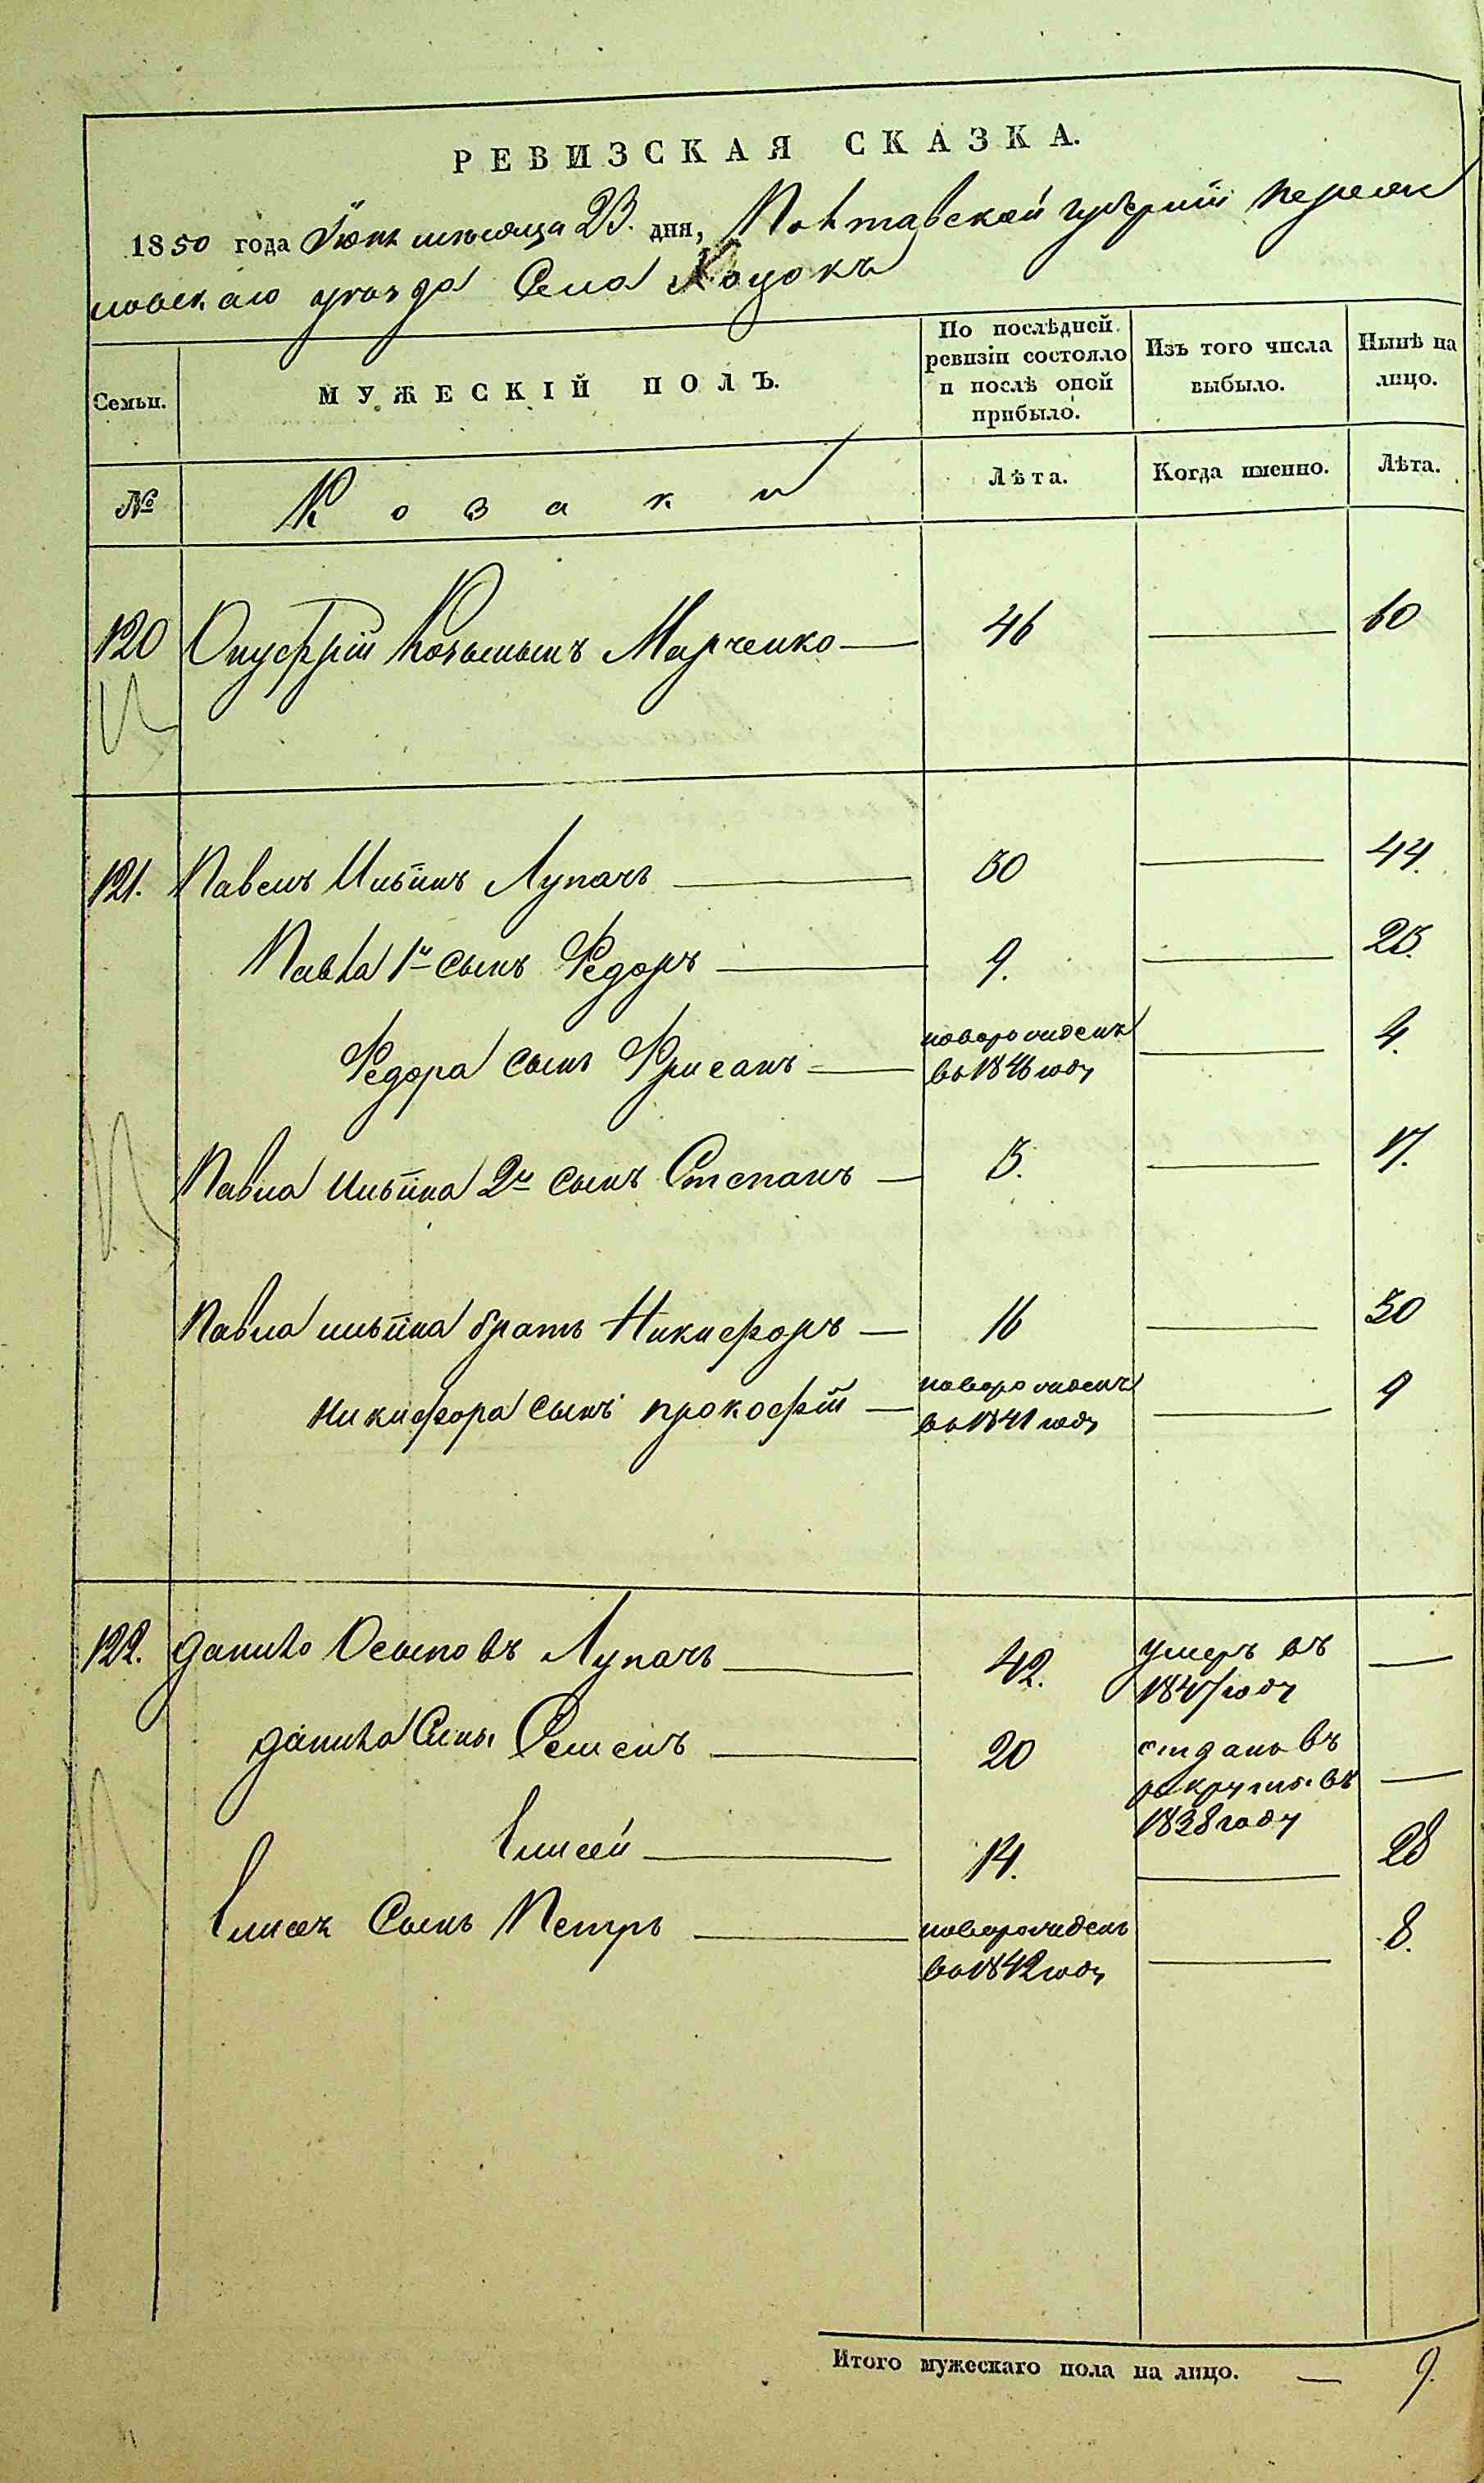 РЕВИЗСКАЯ СКАЗКА.
1850 года Июня месяца 23. дня, Полтавской губернии Переяс
ловскаго уезда Села Хоцокъ
Семьи.
МУЖЕСКІЙ ПОЛЪ.
По послѣдней ревизіи состояло и послѣ оной прибыло.
Изъ того числа выбыло.
Нынѣ на лицо.
№
Козаки
Лѣта.
Когда именно.
Лѣта.
120 Онуфрій Козьминъ Марченко — 46 — 60
121. Павелъ Ильинъ Лупачъ — 30 — 44.
Павла 1й сынъ Федоръ — 9. — 23.
Федора сынъ — новорожденъ — 4.
въ 1846 году
Павла Ильина 2й сынъ Степанъ — 3. — 17.
Павла Ильина братъ Никифоръ — 16 — 30
Никифора сынъ Прокофій — новорожденъ — 9
въ 1841 году
122. Данило Осиповъ Лупачъ — 42. умеръ въ —
1847 году
Данила Сыны Семенъ — 20 отданъ въ
рекруты въ —
1838 году
Елисей — 14. — 28
Елисея Сынъ Петръ — новорожденъ — 8.
въ 1842 году
Итого мужескаго пола на лицо. — 9.